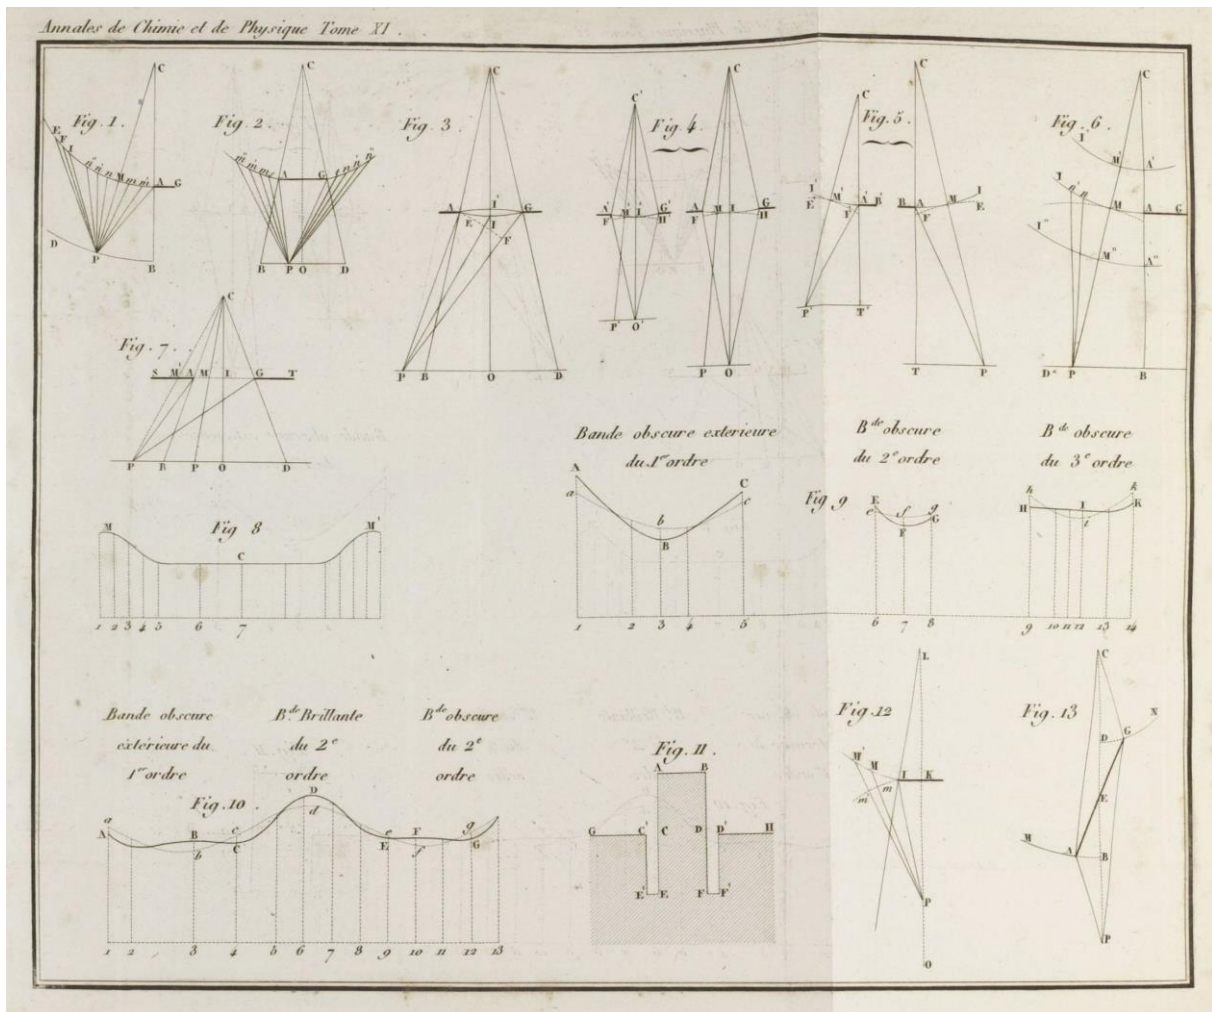 Annales de Chimie et de Physique Tome XI.
Fig. 1.
C
E
F
I
n" n' n M m m' A G
D
P
B
Fig. 2
C
m" m' m A G n n' n"
B P O D
Fig. 3
C
A I' G
E I
F
P B O D
Fig. 4.
C' C
A' M' I' G' A M I G
F H' F H
P' O' P O
Fig. 5.
C C
I' M' A' B' B A M I
E' F F E
P' T' T P
Fig. 6
C
I' M' A'
I n' n M A G
I" M" A"
D P B
Fig. 7.
C
S M' A M I G T
P B P O D
Fig 8
M C M'
1 2 3 4 5 6 7
Bande obscure exterieure
du 1er ordre
A a b B C c
1 2 3 4 5
Fig 9
Bde obscure
du 2e ordre
E e f F g G
6 7 8
Bde obscure
du 3e ordre
h H I i k K
9 10 11 12 13 14
Bande obscure
extérieure du
1er ordre
Bde Brillante
du 2e
ordre
Bde obscure
du 2e
ordre
Fig. 10.
a A B b c C D d e E F f g G
1 2 3 4 5 6 7 8 9 10 11 12 13
Fig. 11
A B
G C' C D D' H
E' E F F'
Fig. 12
L
M' M I K
m' m
P
O
Fig. 13
C
N
D G
E
M A B
P